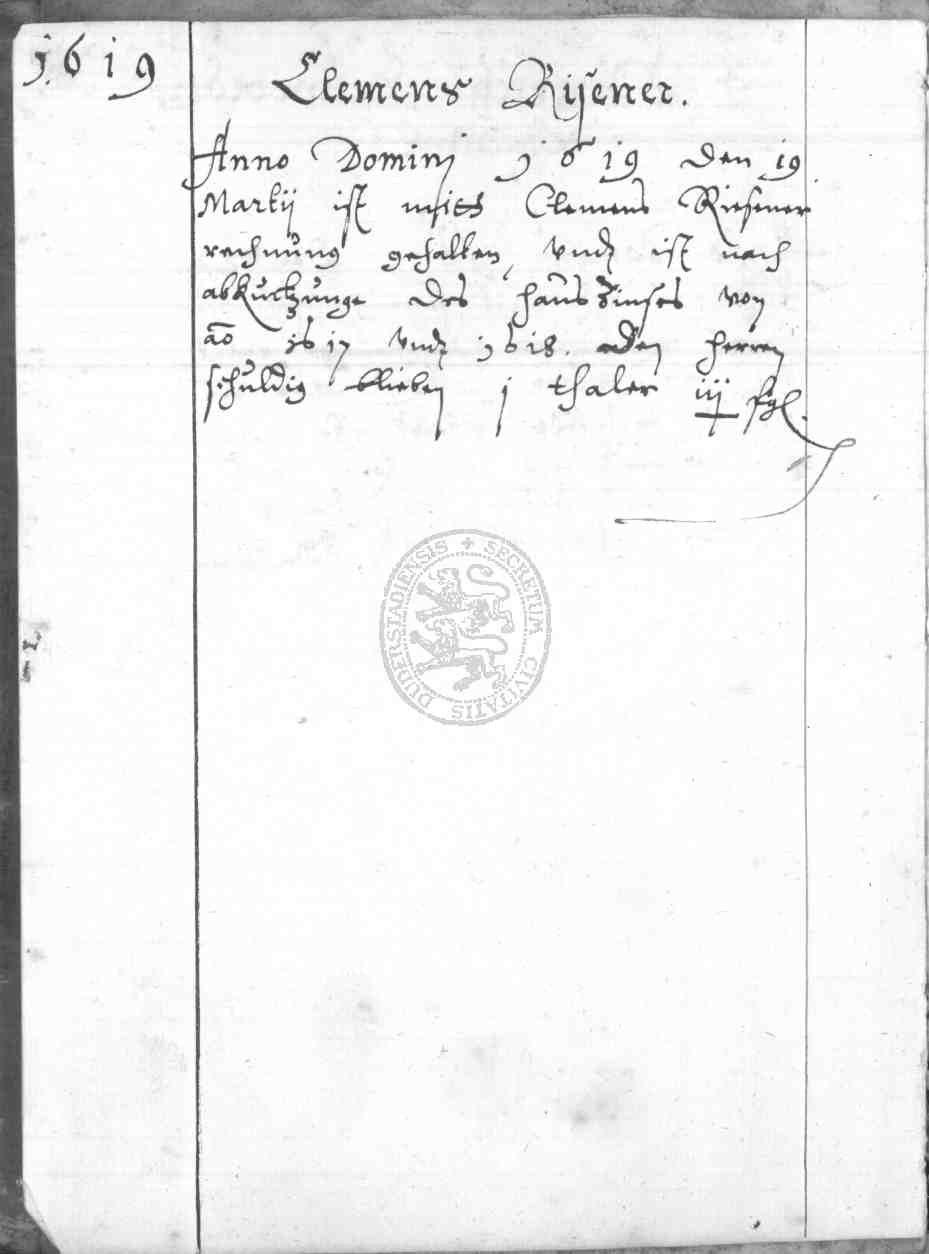 1619
Clemens Risener.
Anno Domini 1619 den 19
Martij ist mitt Clemens Riesener
rechnung gehalten, vndt ist nach
abkurtzunge des haus Zinses von
ao 1617 vndt 1618. den herren
schuldig blieben j thaler iij sgl.
SECRETUM CIVITATIS DUDERSTADIENSIS